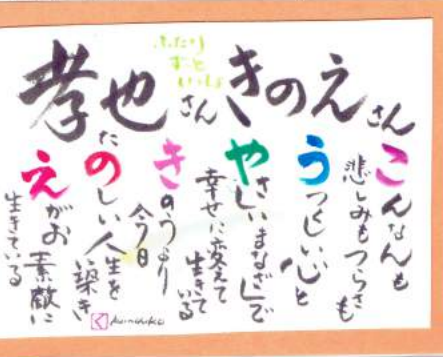 ふたり
ずっと
いっしょ
孝也さん きのえさん
こんなんも
悲しみもつらさも
うつくしい心と
やさしいまなざしで
幸せに変えて
生きている
きのうより
今日
たのしい人生を
築き
えがお素敵に
生きている